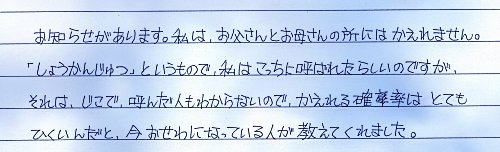 お知らせがあります。私は、お父さんとお母さんの所には かえれません。
「しょうかんじゅつ」というもので、私はこっちに呼ばれたらしいのですが、
それは、じこで、呼んだ人もわからないので、かえれる確率は とても
ひくいんだと、今おせわになっている人が教えてくれました。